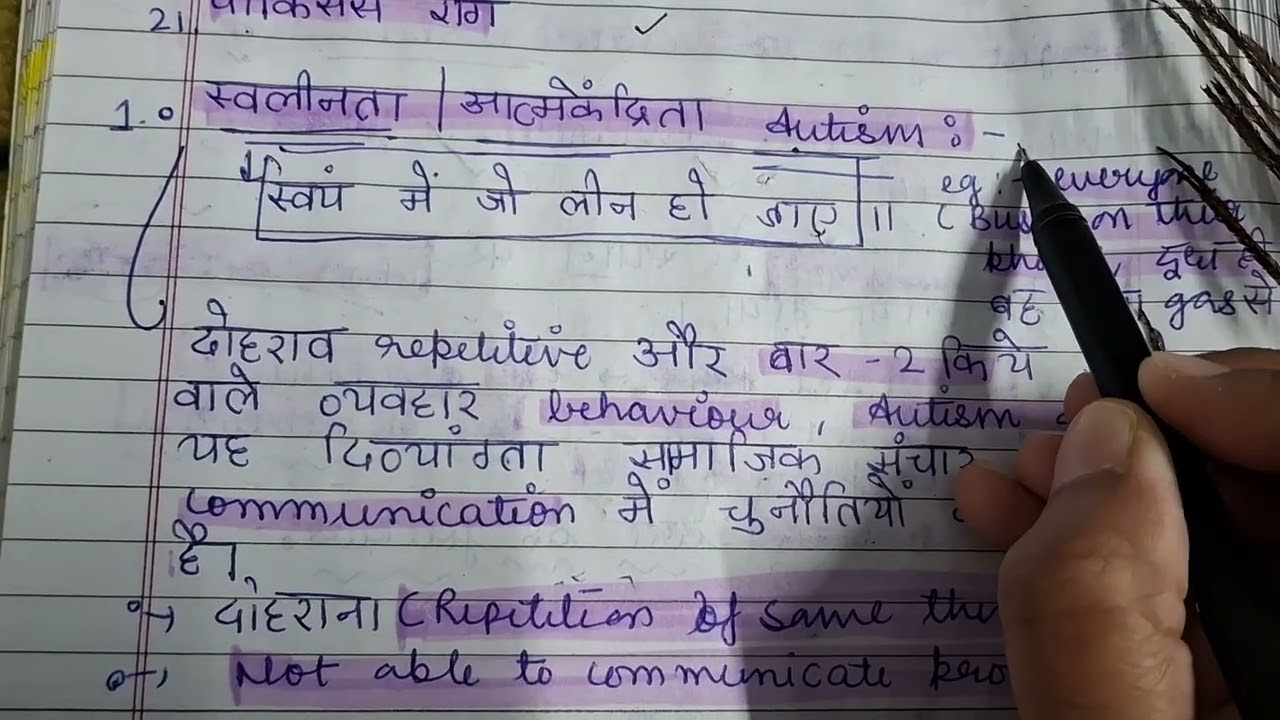 21
रोग
1. स्वलीनता | आत्मकेंद्रिता Autism : -
स्वयं में जो लीन हो जाए ॥
eg :- everyone
(
on their
, दूध ही
बह gas से
दोहराव repetitive और बार -2 किये
वाले व्यवहार behaviour, Autism
यह दिव्यांगता सामाजिक संचार
communication में चुनौतियों
है।
दोहराना (Repetition of same
Not able to communicate